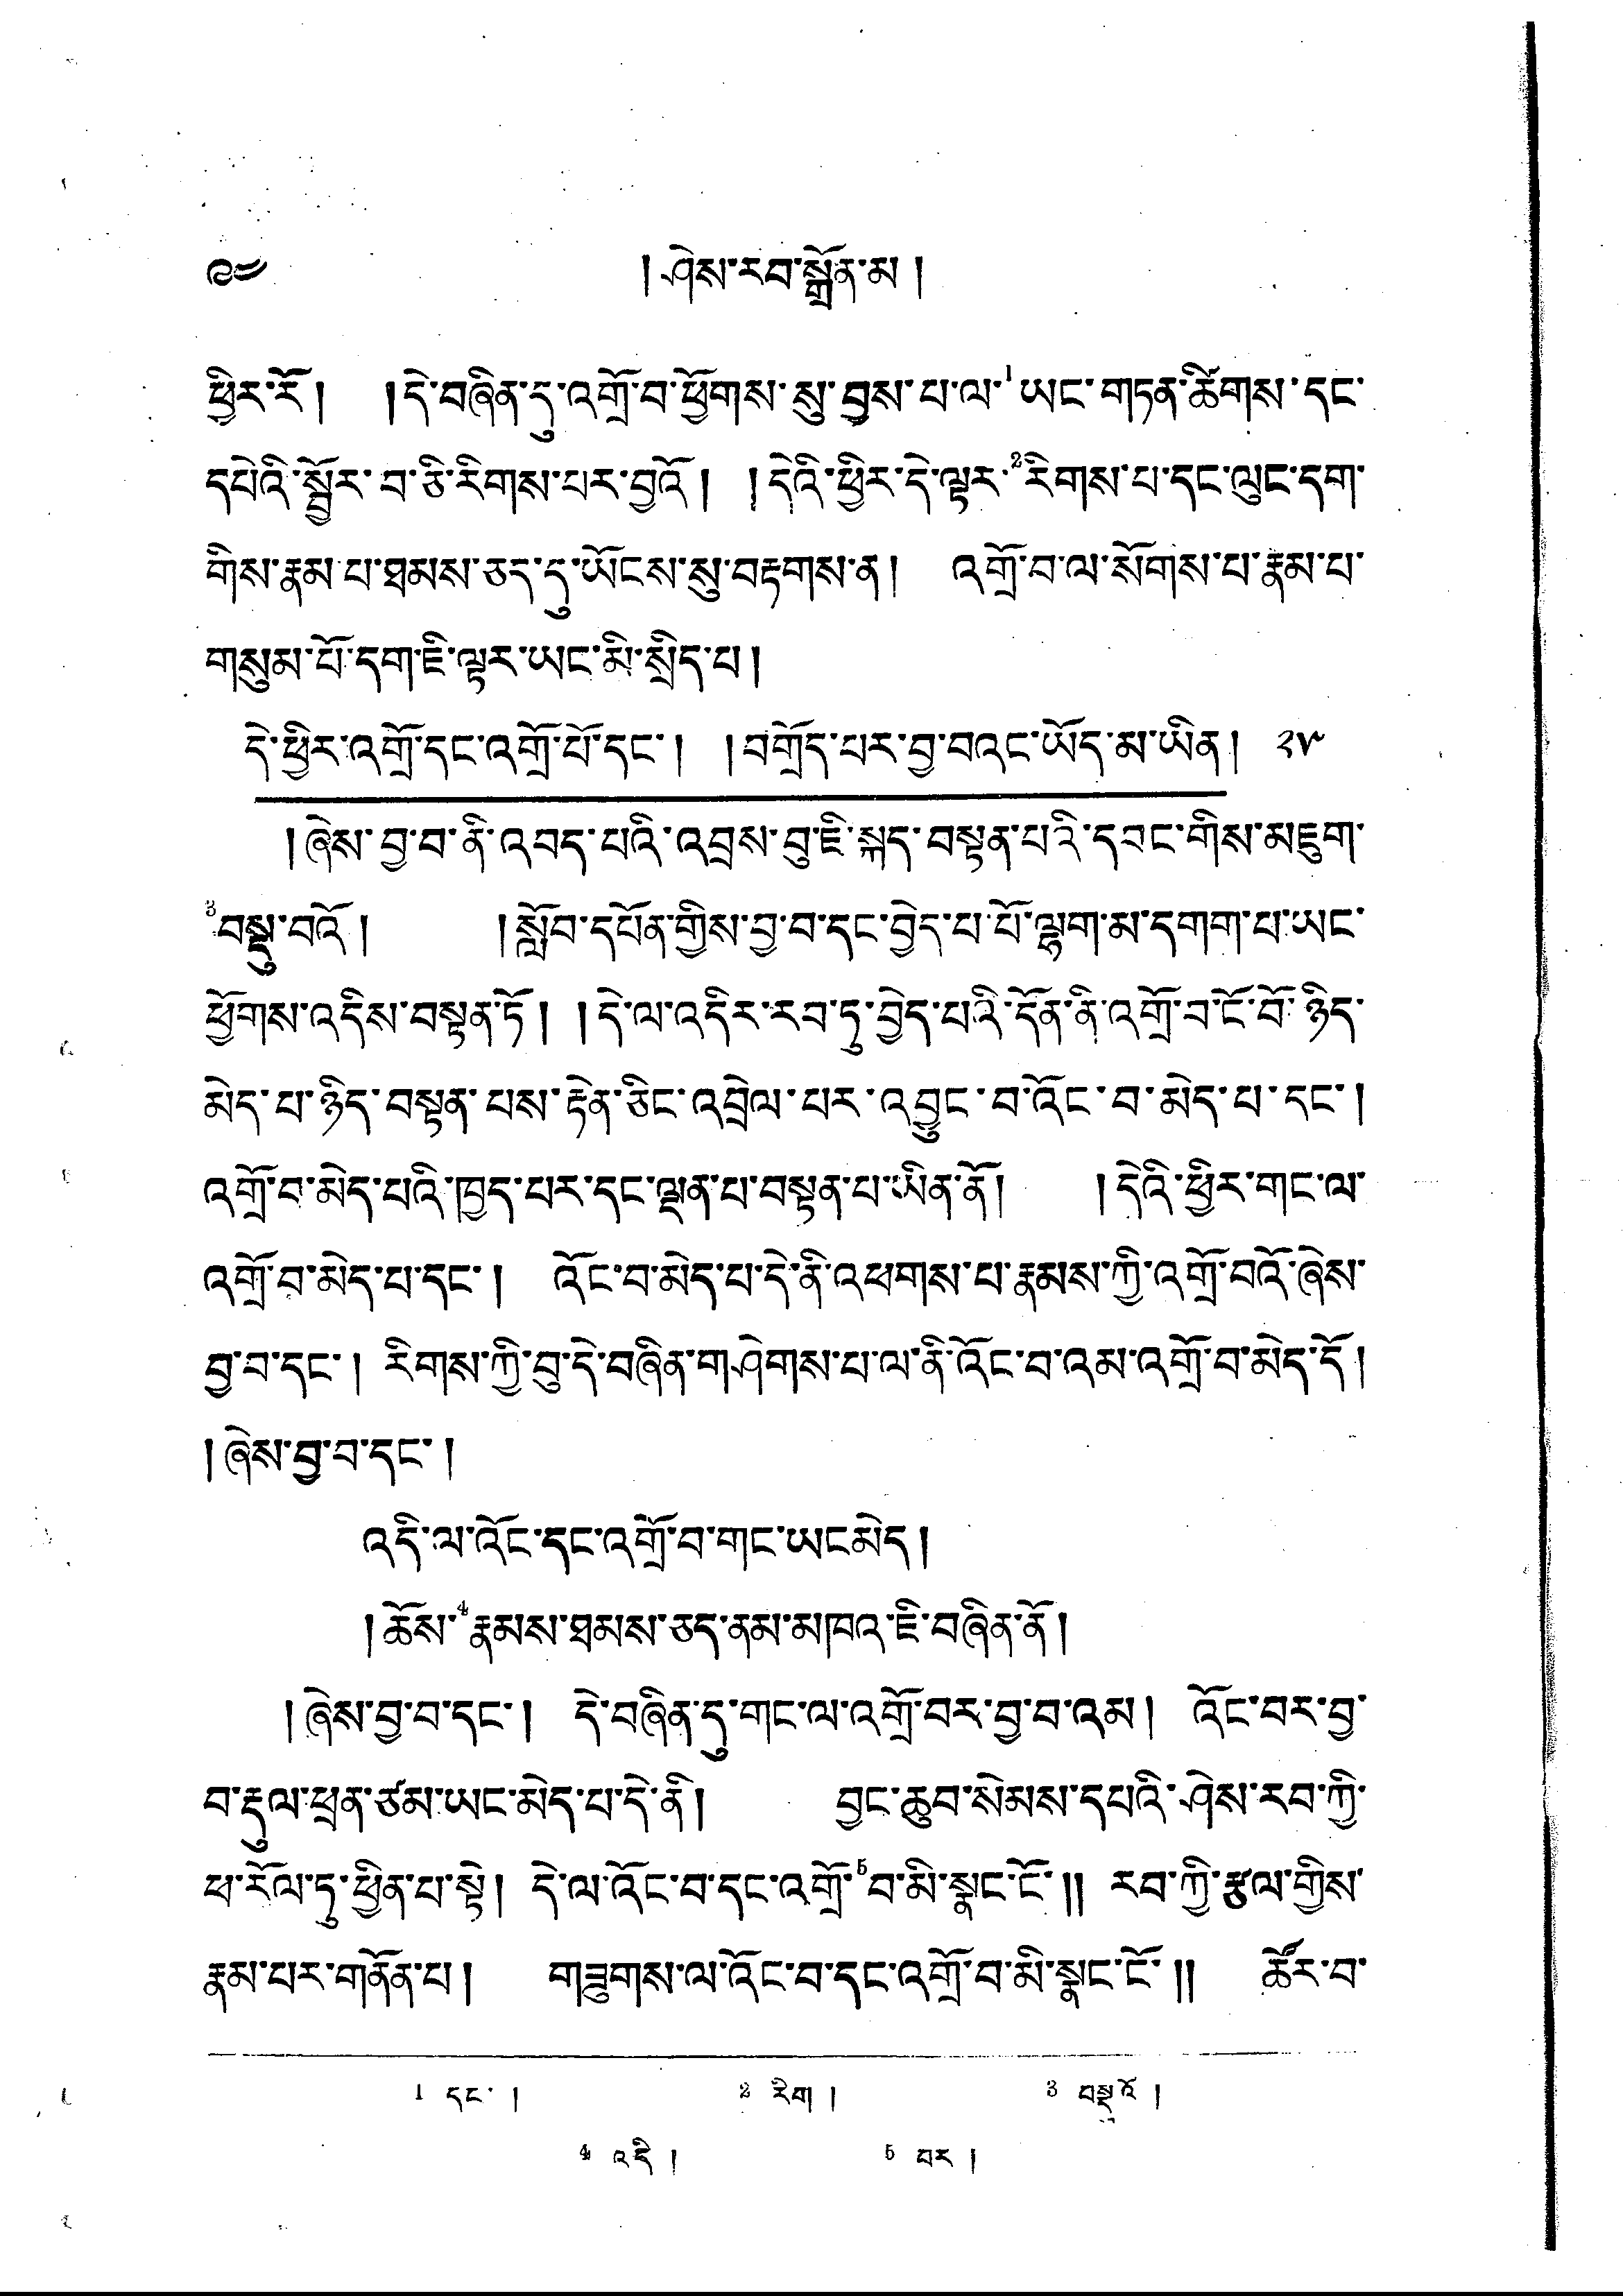 ༩༠ །ཤེས་རབ་སྒྲོན་མ།
ཕྱིར་རོ། །དེ་བཞིན་དུ་འགྲོ་བ་ཕྱོགས་སུ་བྱས་པ་ལ་¹ཡང་གཏན་ཚིགས་དང་
དཔེའི་སྦྱོར་བ་ཅི་རིགས་པར་བྱའོ། །དེའི་ཕྱིར་དེ་ལྟར་²རིགས་པ་དང་ལུང་དག་
གིས་རྣམ་པ་ཐམས་ཅད་དུ་ཡོངས་སུ་བརྟགས་ན། འགྲོ་བ་ལ་སོགས་པ་རྣམ་པ་
གསུམ་པོ་དག་ཇི་ལྟར་ཡང་མི་སྲིད་པ།
དེ་ཕྱིར་འགྲོ་དང་འགྲོ་པོ་དང་། །བགྲོད་པར་བྱ་བའང་ཡོད་མ་ཡིན། ༢༥
།ཞེས་བྱ་བ་ནི་འབད་པའི་འབྲས་བུ་ཇི་སྐད་བསྟན་པའི་དབང་གིས་མཇུག་
³བསྡུ་བའོ། །སློབ་དཔོན་གྱིས་བྱ་བ་དང་བྱེད་པ་པོ་ལྷག་མ་དགག་པ་ཡང་
ཕྱོགས་འདིས་བསྟན་ཏོ། །དེ་ལ་འདིར་རབ་ཏུ་བྱེད་པའི་དོན་ནི་འགྲོ་བ་ངོ་བོ་ཉིད་
མེད་པ་ཉིད་བསྟན་པས་རྟེན་ཅིང་འབྲེལ་པར་འབྱུང་བ་འོང་བ་མེད་པ་དང་།
འགྲོ་བ་མེད་པའི་ཁྱད་པར་དང་ལྡན་པ་བསྟན་པ་ཡིན་ནོ། །དེའི་ཕྱིར་གང་ལ་
འགྲོ་བ་མེད་པ་དང་། འོང་བ་མེད་པ་དེ་ནི་འཕགས་པ་རྣམས་ཀྱི་འགྲོ་བའོ་ཞེས་
བྱ་བ་དང་། རིགས་ཀྱི་བུ་དེ་བཞིན་གཤེགས་པ་ལ་ནི་འོང་བ་འམ་འགྲོ་བ་མེད་དོ།
།ཞེས་བྱ་བ་དང་།
འདི་ལ་འོང་དང་འགྲོ་བ་གང་ཡངམེད།
།ཆོས་⁴རྣམས་ཐམས་ཅད་ནམ་མཁའ་ཇི་བཞིན་ནོ།
།ཞེས་བྱ་བ་དང་། དེ་བཞིན་དུ་གང་ལ་འགྲོ་བར་བྱ་བ་འམ། འོང་བར་བྱ་
བ་རྡུལ་ཕྲན་ཙམ་ཡང་མེད་པ་དེ་ནི། བྱང་ཆུབ་སེམས་དཔའི་ཤེས་རབ་ཀྱི་
ཕ་རོལ་ཏུ་ཕྱིན་པ་སྟེ། དེ་ལ་འོང་བ་དང་འགྲོ་⁵བ་མི་སྣང་ངོ་།། རབ་ཀྱི་རྩལ་གྱིས་
རྣམ་པར་གནོན་པ། གཟུགས་ལ་འོང་བ་དང་འགྲོ་བ་མི་སྣང་ངོ་།། ཚོར་བ་
1 དང་། 2 རིག། 3 བསྡུའོ།
4 འདི། 5 བར།